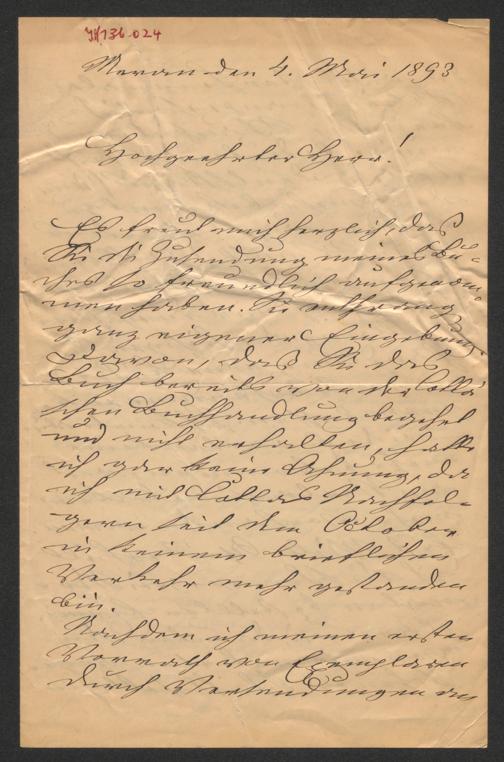 JN 136.024
Meran den 4. Mai 1893
Hochgeehrter Herr!
Es freut mich herzlich, daß
Sie die Zusendung meines Bu-
ches so freundlich aufgenom-
men haben. Sie entsprang
ganz eigener Eingebung.
Davon, daß Sie das
Buch bereits von der Cotta
schen Buchhandlung begehrt
und nicht erhalten, hatte
ich gar keine Ahnung, da
ich mit Cottas Nachfol-
gern seit dem October
in keinem brieflichen
Verkehr mehr gestanden
bin.
Nachdem ich meinen ersten
Vorrath von Exemplaren
durch Versendungen an